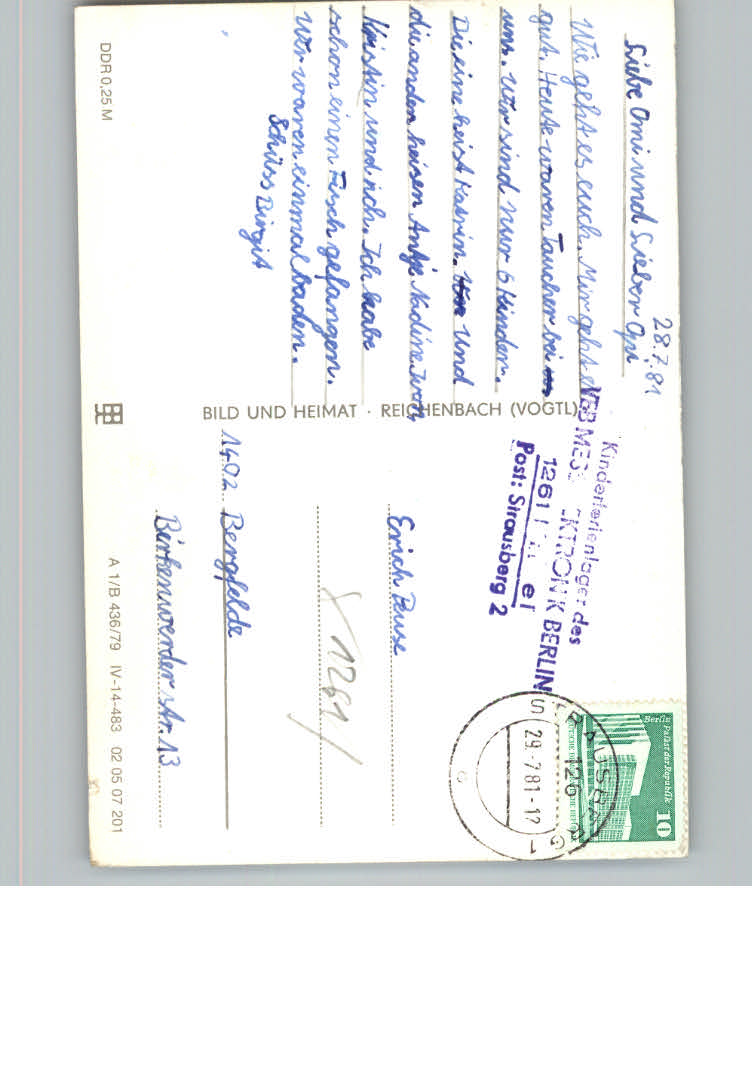 28.7.81
Liebe Omi und Lieber Opi
Wie geht es euch. Mir geht es
gut. Heute waren Taucher bei
uns. Wir sind nur 6 Kinder.
Die eine heist Katrin. und
die anden heisen Antje Nadine
Kristin und ich. Ich habe
schon einen Fisch gefangen.
Wir waren einmal baden.
Schüss Birgit
DDR 0,25 M
BILD UND HEIMAT · REICHENBACH (VOGTL)
Kinderferienlager des
VEB MESSELEKTRONIK BERLIN
1261
Post: Strausberg 2
Berlin Palast der Republik
10
STRAUSBERG 1
126
29.-7.81-17
Erich
1261
1402 Bergfelde
Birkenwerder str. 13
A 1/B 436/79 IV-14-483 02 05 07 201